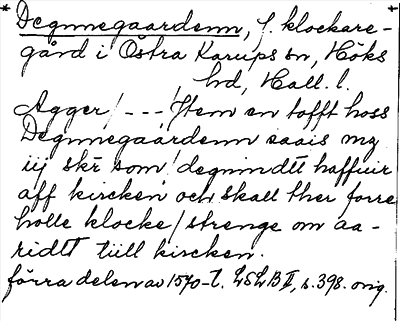 Degnnegaardenn, f. klockare-
gård i Östra Karups sn, Höks
hd, Hall. l.
Agger/ - - - /Item en tofft hoss
Degnnegaardenn saais mz
iij skr som degnndtt haffuir
aff kircken och skall ther forre
holle klocke/strenge om aa-
ridtt tiill kircken.
förra delen av 1570-t. LSLB II, s. 398. orig.